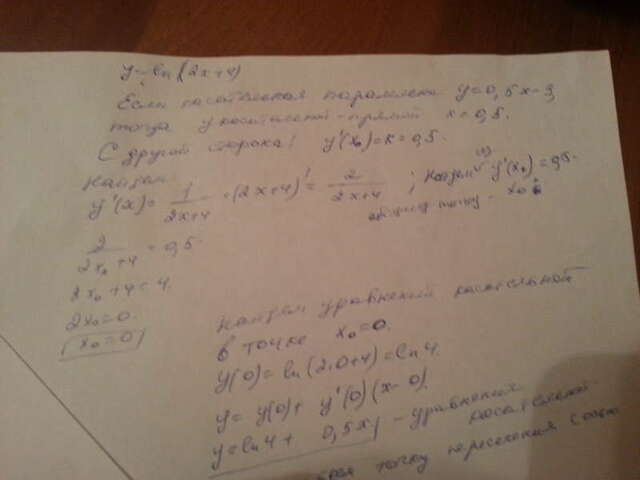 y = ln(2x+4)
Если касательная параллельна y=0,5x-3,
тогда у касательной-прямой k=0,5.
С другой стороны! y'(x₀)=k=0,5.
Найдем
y'(x) = 1/(2x+4) · (2x+4)' = 2/(2x+4) ; Найдем y'(x₀)=0,5
общую точку - x₀
2/(2x₀+4) = 0,5
2x₀+4=4
2x₀=0
x₀=0
Найдем уравнение касательной
в точке x₀=0.
y(0)=ln(2·0+4)=ln4.
y=y(0)+ y'(0)(x-0)
y=ln4+ 0,5x - уравнение
касательной
точку пересечения с осью